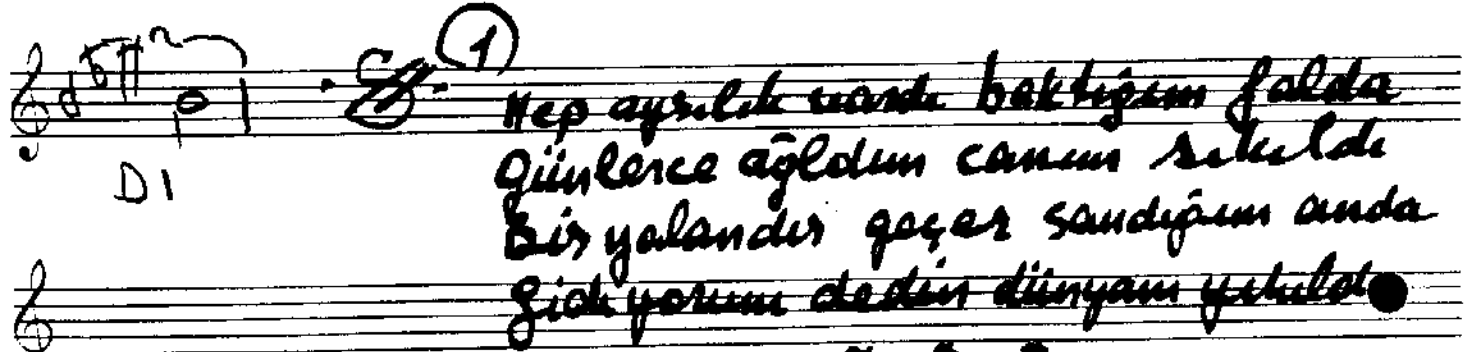 1
Hep ayrılık vardı baktığım falda
Günlerce ağldım canım sıkıldı
Bir yalandır geçer sandığım anda
Gidiyorum dedin dünyam yıkıldı
DI